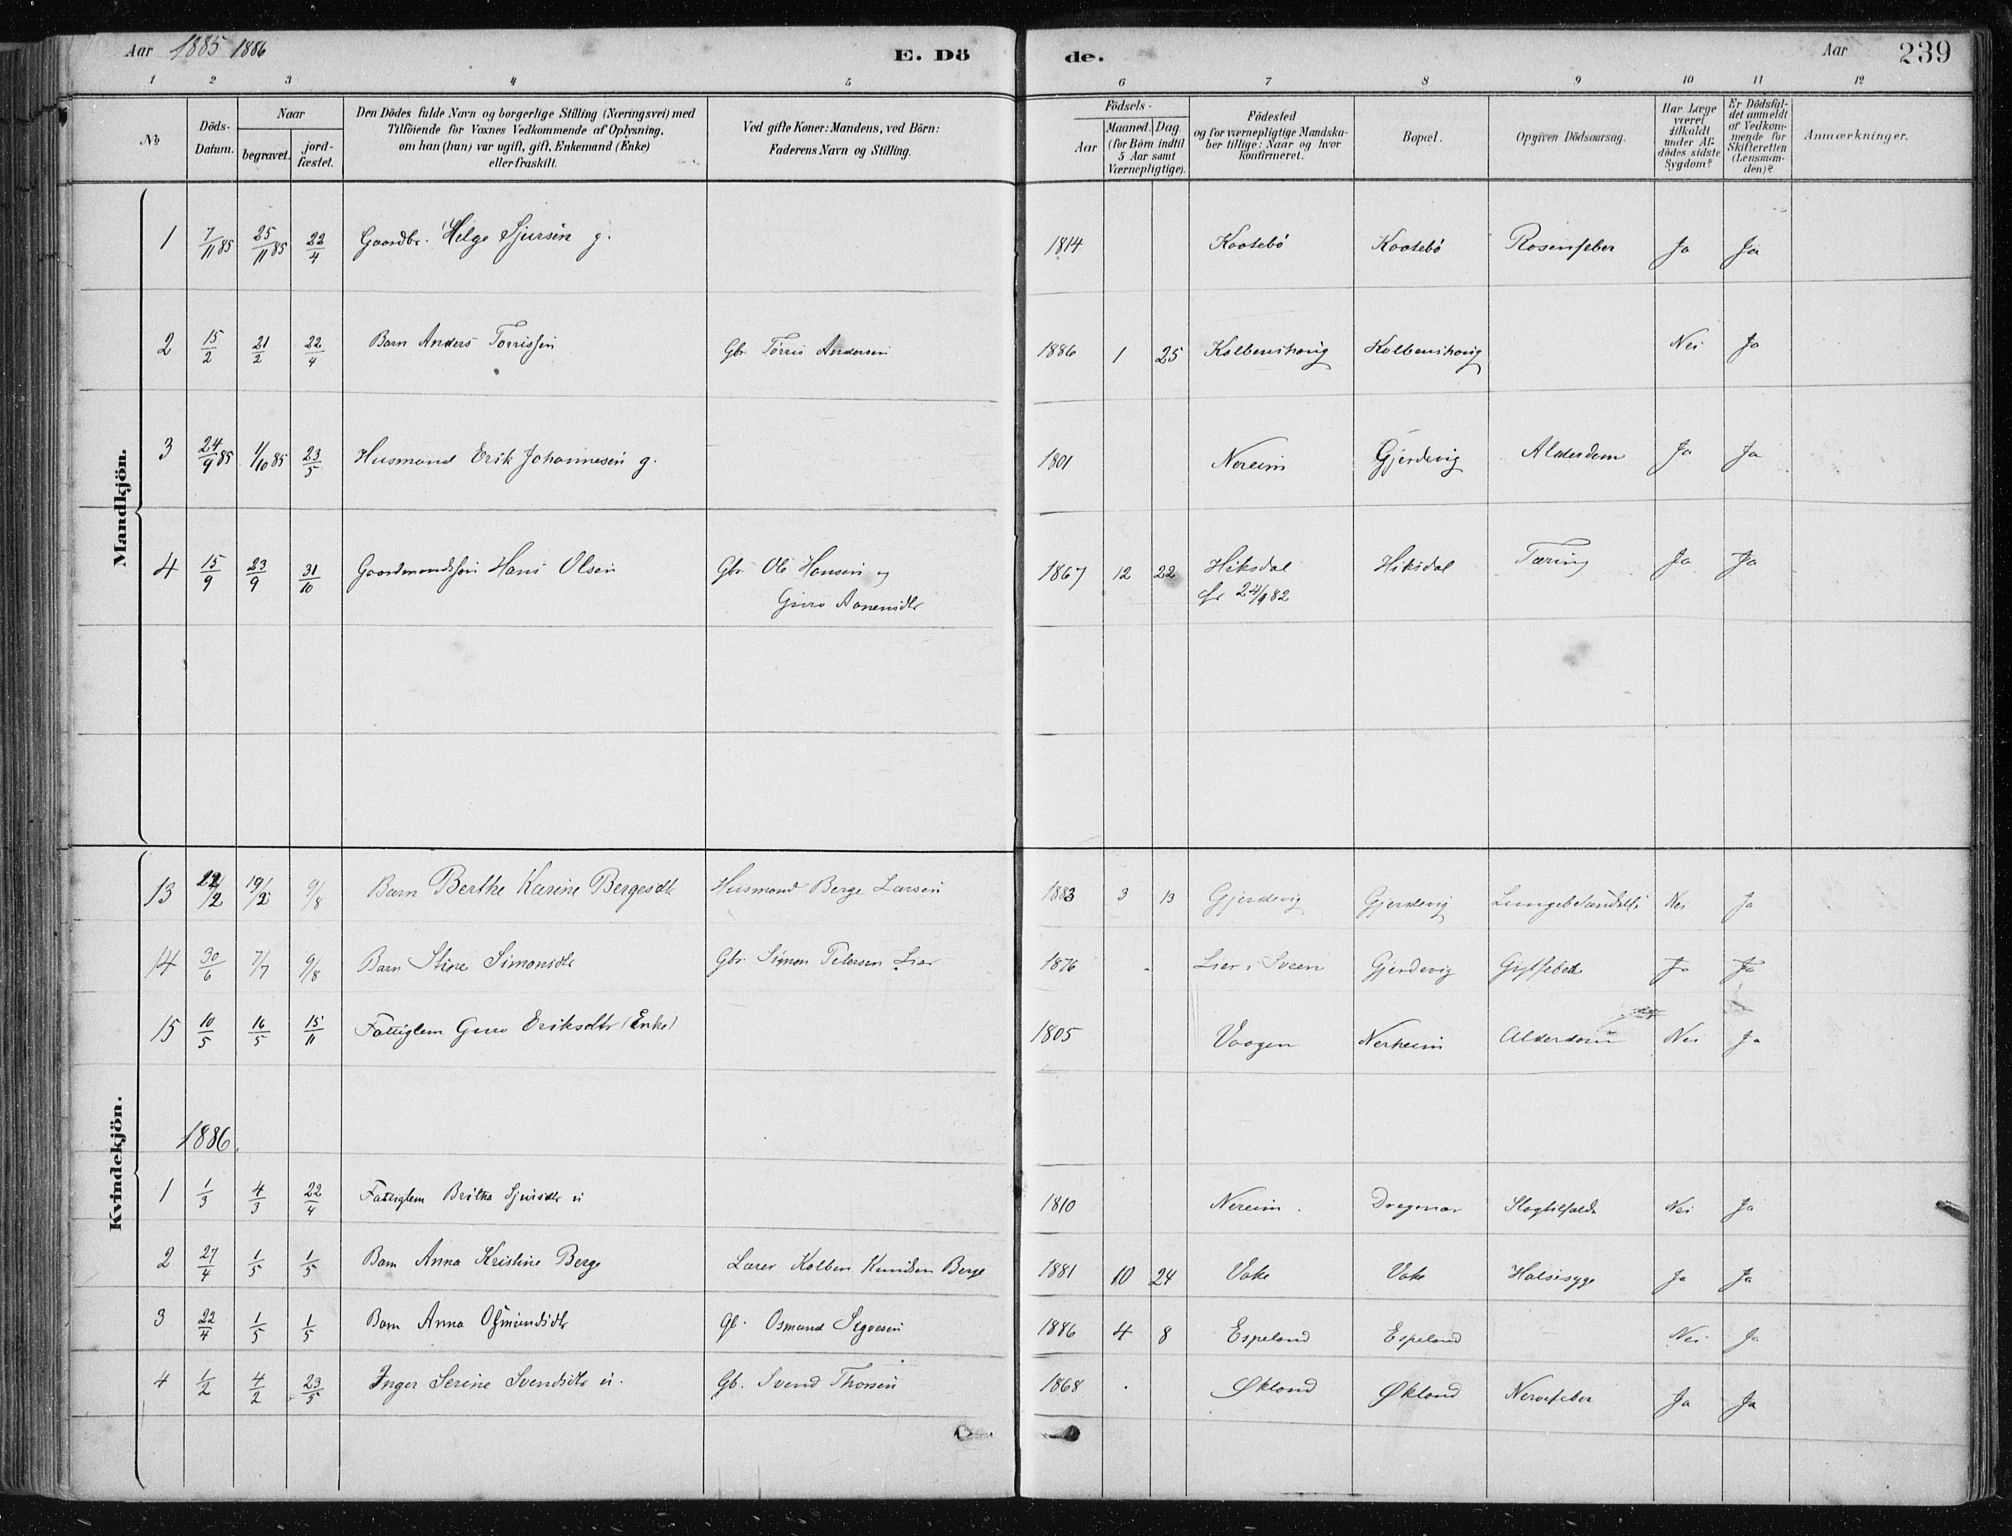 Aar 1885 1886 E. Dö de. Aar 239
1 2 3 4 5 6 7 8 9 10 11 12
No
Döds-Datum.
Naar
begravet.
jord-fæstet.
Den Dödes fulde Navn og borgerlige Stilling (Næringsvei) med
Tilföiende for Voxnes Vedkommende af Oplysning,
om han (hun) var ugift, gift, Enkemand (Enke)
eller fraskilt.
Ved gifte Koner: Mandens, ved Börn:
Faderens Navn og Stilling.
Födsels-
Aar
Maaned. Dag
(for Börn indtil
5 Aar samt
Værnepligtige).
Födested
og for værnepligtige Mandska-
ber tillige: Naar og hvor
konfirmeret.
Bopæl.
Opgiven Dödsaarsag.
Har Læge
været
tilkaldt
under Af-
dödes sidste
Sygdom?
Er Dödsfal-
det anmeldt
af Vedkom-
mende for
Skifteretten
(Lensman-
den)?
Anmærkninger.
Mandkjön.
1 7/11 85 25/11 85 22/4 Gaardbr. Helge Sjursen g. 1814 Kaatebö Kaatebö Rosenfeber Ja Ja
2 15/2 21/2 22/4 Barn Anders Torrissen Gbr Törris Andersen 1886 1 25 Kolbenshaug Kolbenshaug Nei Ja
3 24/9 85 1/10 85 23/5 Husmand Erik Johannesen g. 1801 Nereim Gjerdevig Alderdom Ja Ja
4 15/9 23/9 31/10 Gaardmandssön Hans Olsen Gbr Ole Hansen og 1867 12 22 Hiksdal Hiksdal Tæring Ja Ja
Guro Aanensdtr 24/9 82
Kvindekjön.
13 19/2 9/8 Barn Berthe Karine Bergesdtr Husmand Berge Larsen 1883 3 13 Gjerdevig Gjerdevig Nei Ja
14 30/6 7/7 9/8 Barn Stine Simonsdtr Gbr Simon Petersen Lier 1876 Lier i Sveen Gjerdevig Ja Ja
15 10/5 16/5 15/11 Fattiglem Guro Eriksdtr (Enke) 1805 Vaagen Nerheim Alderdom Nei Ja
1886.
1 1/3 4/3 22/4 Fattiglem Britha Sjursdtr ú 1810 Nereim. Slagtilfælde Nei Ja
2 27/4 1/5 1/5 Barn Anna Kristine Berge Lærer Kolben Knudsen Berge 1881 10 24 Vake Vake Halssyge Ja Ja
3 22/4 1/5 1/5 Barn Anna Osmundsdtr Gb. Osmund Sigvesen 1886 4 8 Espeland Espeland Nei Ja
4 1/2 4/2 23/5 Inger Serine Svendsdtr ú. Gb. Svend Thorsen 1868 Økland Økland Nervefeber Ja Ja